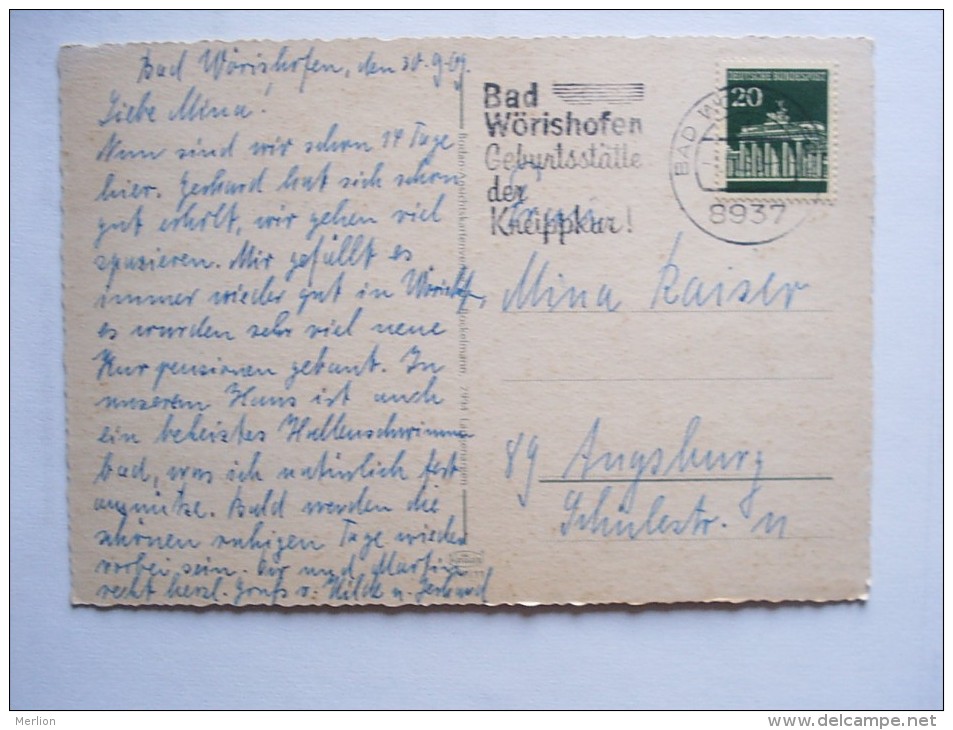 Bad Wörishofen, den 30.9.69.
Liebe Mina!
Nun sind wir schon 14 Tage
hier. Gerhard hat sich schon
gut erholt, wir gehen viel
spazieren. Mir gefällt es
immer wieder gut in Wörishfn,
es wurden sehr viel neue
Kurpensionen gebaut. In
unserem Haus ist auch
ein beheiztes Hallenschwimm
bad, was ich natürlich fest
ausnütze. Bald werden die
schönen ruhigen Tage wieder
vorbei sein. Dir und Martin
recht herzl. Grüße v. Hilde u. Gerhard
Bad
Wörishofen
Geburtsstätte
der
Kneippkur!
DEUTSCHE BUNDESPOST
20
BAD WÖ
8937
Mina Kaiser
89 Augsburg
Schülestr. 11
Merlion
delcampe.net